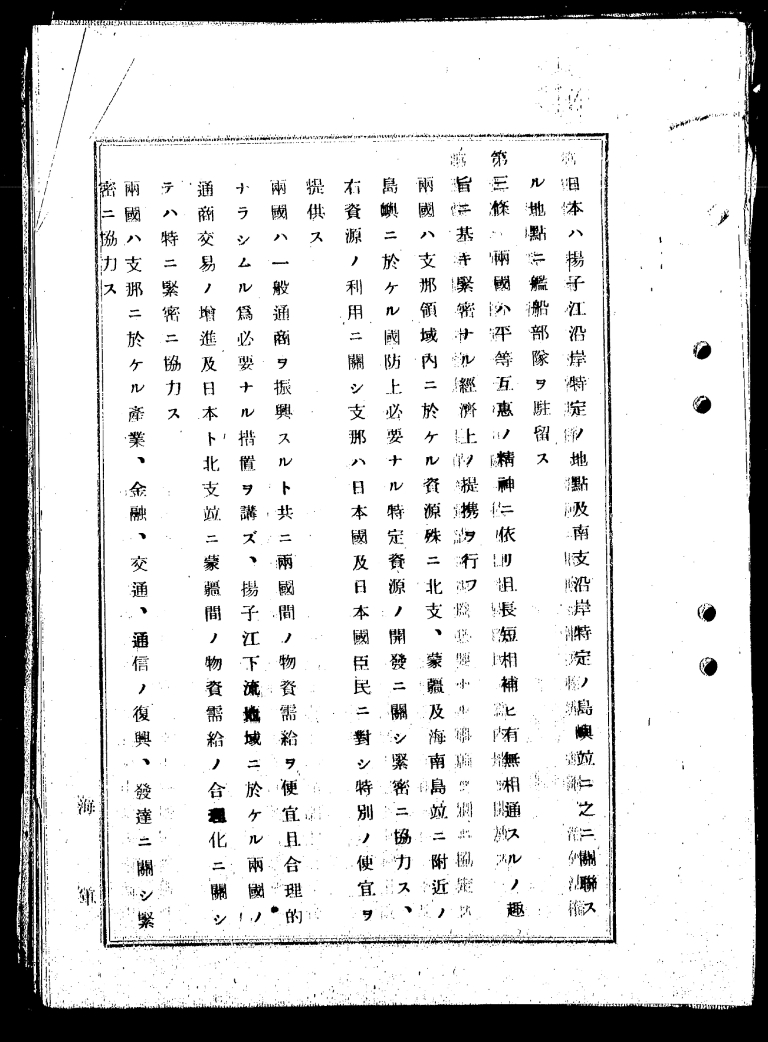 日本ハ揚子江沿岸特定ノ地點及南支沿岸特定ノ島嶼竝ニ之ニ關聯ス
ル地點ニ艦船部隊ヲ駐留ス
第三條 兩國ハ平等互惠ノ精神ニ依リ且長短相補ヒ有無相通スルノ趣
旨ニ基キ緊密ナル經濟上ノ提携ヲ行フ
兩國ハ支那領域内ニ於ケル資源殊ニ北支、蒙疆及海南島竝ニ附近ノ
島嶼ニ於ケル國防上必要ナル特定資源ノ開發ニ關シ緊密ニ協力ス、
右資源ノ利用ニ關シ支那ハ日本國及日本國臣民ニ對シ特別ノ便宜ヲ
提供ス
兩國ハ一般通商ヲ振興スルト共ニ兩國間ノ物資需給ヲ便宜且合理的
ナラシムル爲必要ナル措置ヲ講ズ、揚子江下流地域ニ於ケル兩國ノ
通商交易ノ增進及日本ト北支竝ニ蒙疆間ノ物資需給ノ合理化ニ關シ
テハ特ニ緊密ニ協力ス
兩國ハ支那ニ於ケル產業、金融、交通、通信ノ復興、發達ニ關シ緊
密ニ協力ス
海軍